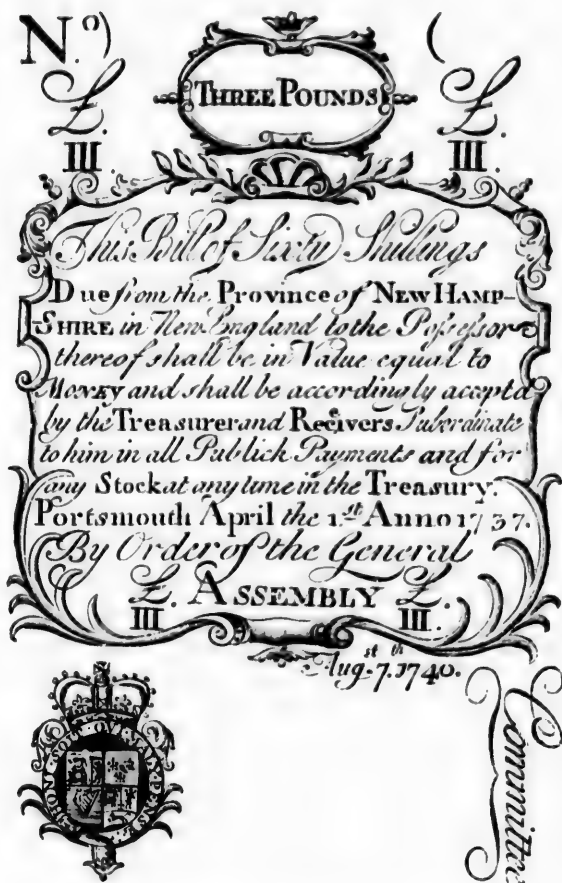 N.º) (
£. THREE POUNDS £.
III. III.
This Bill of Sixty Shillings
Due from the Province of NEW HAMP-
SHIRE in New England to the Poſseſsor
thereof shall be in Value equal to
MONEY and shall be accordingly acceptd
by the Treasurer and Receivers Subordinate
to him in all Publick Payments and for
any Stock at any time in the Treasury.
Portsmouth April the 1.st Anno 1737.
By Order of the General
£. ASSEMBLY £.
III. III.
Augst. 7th. 1740.
HONI SOIT QUI MAL Y PENSE
Committee